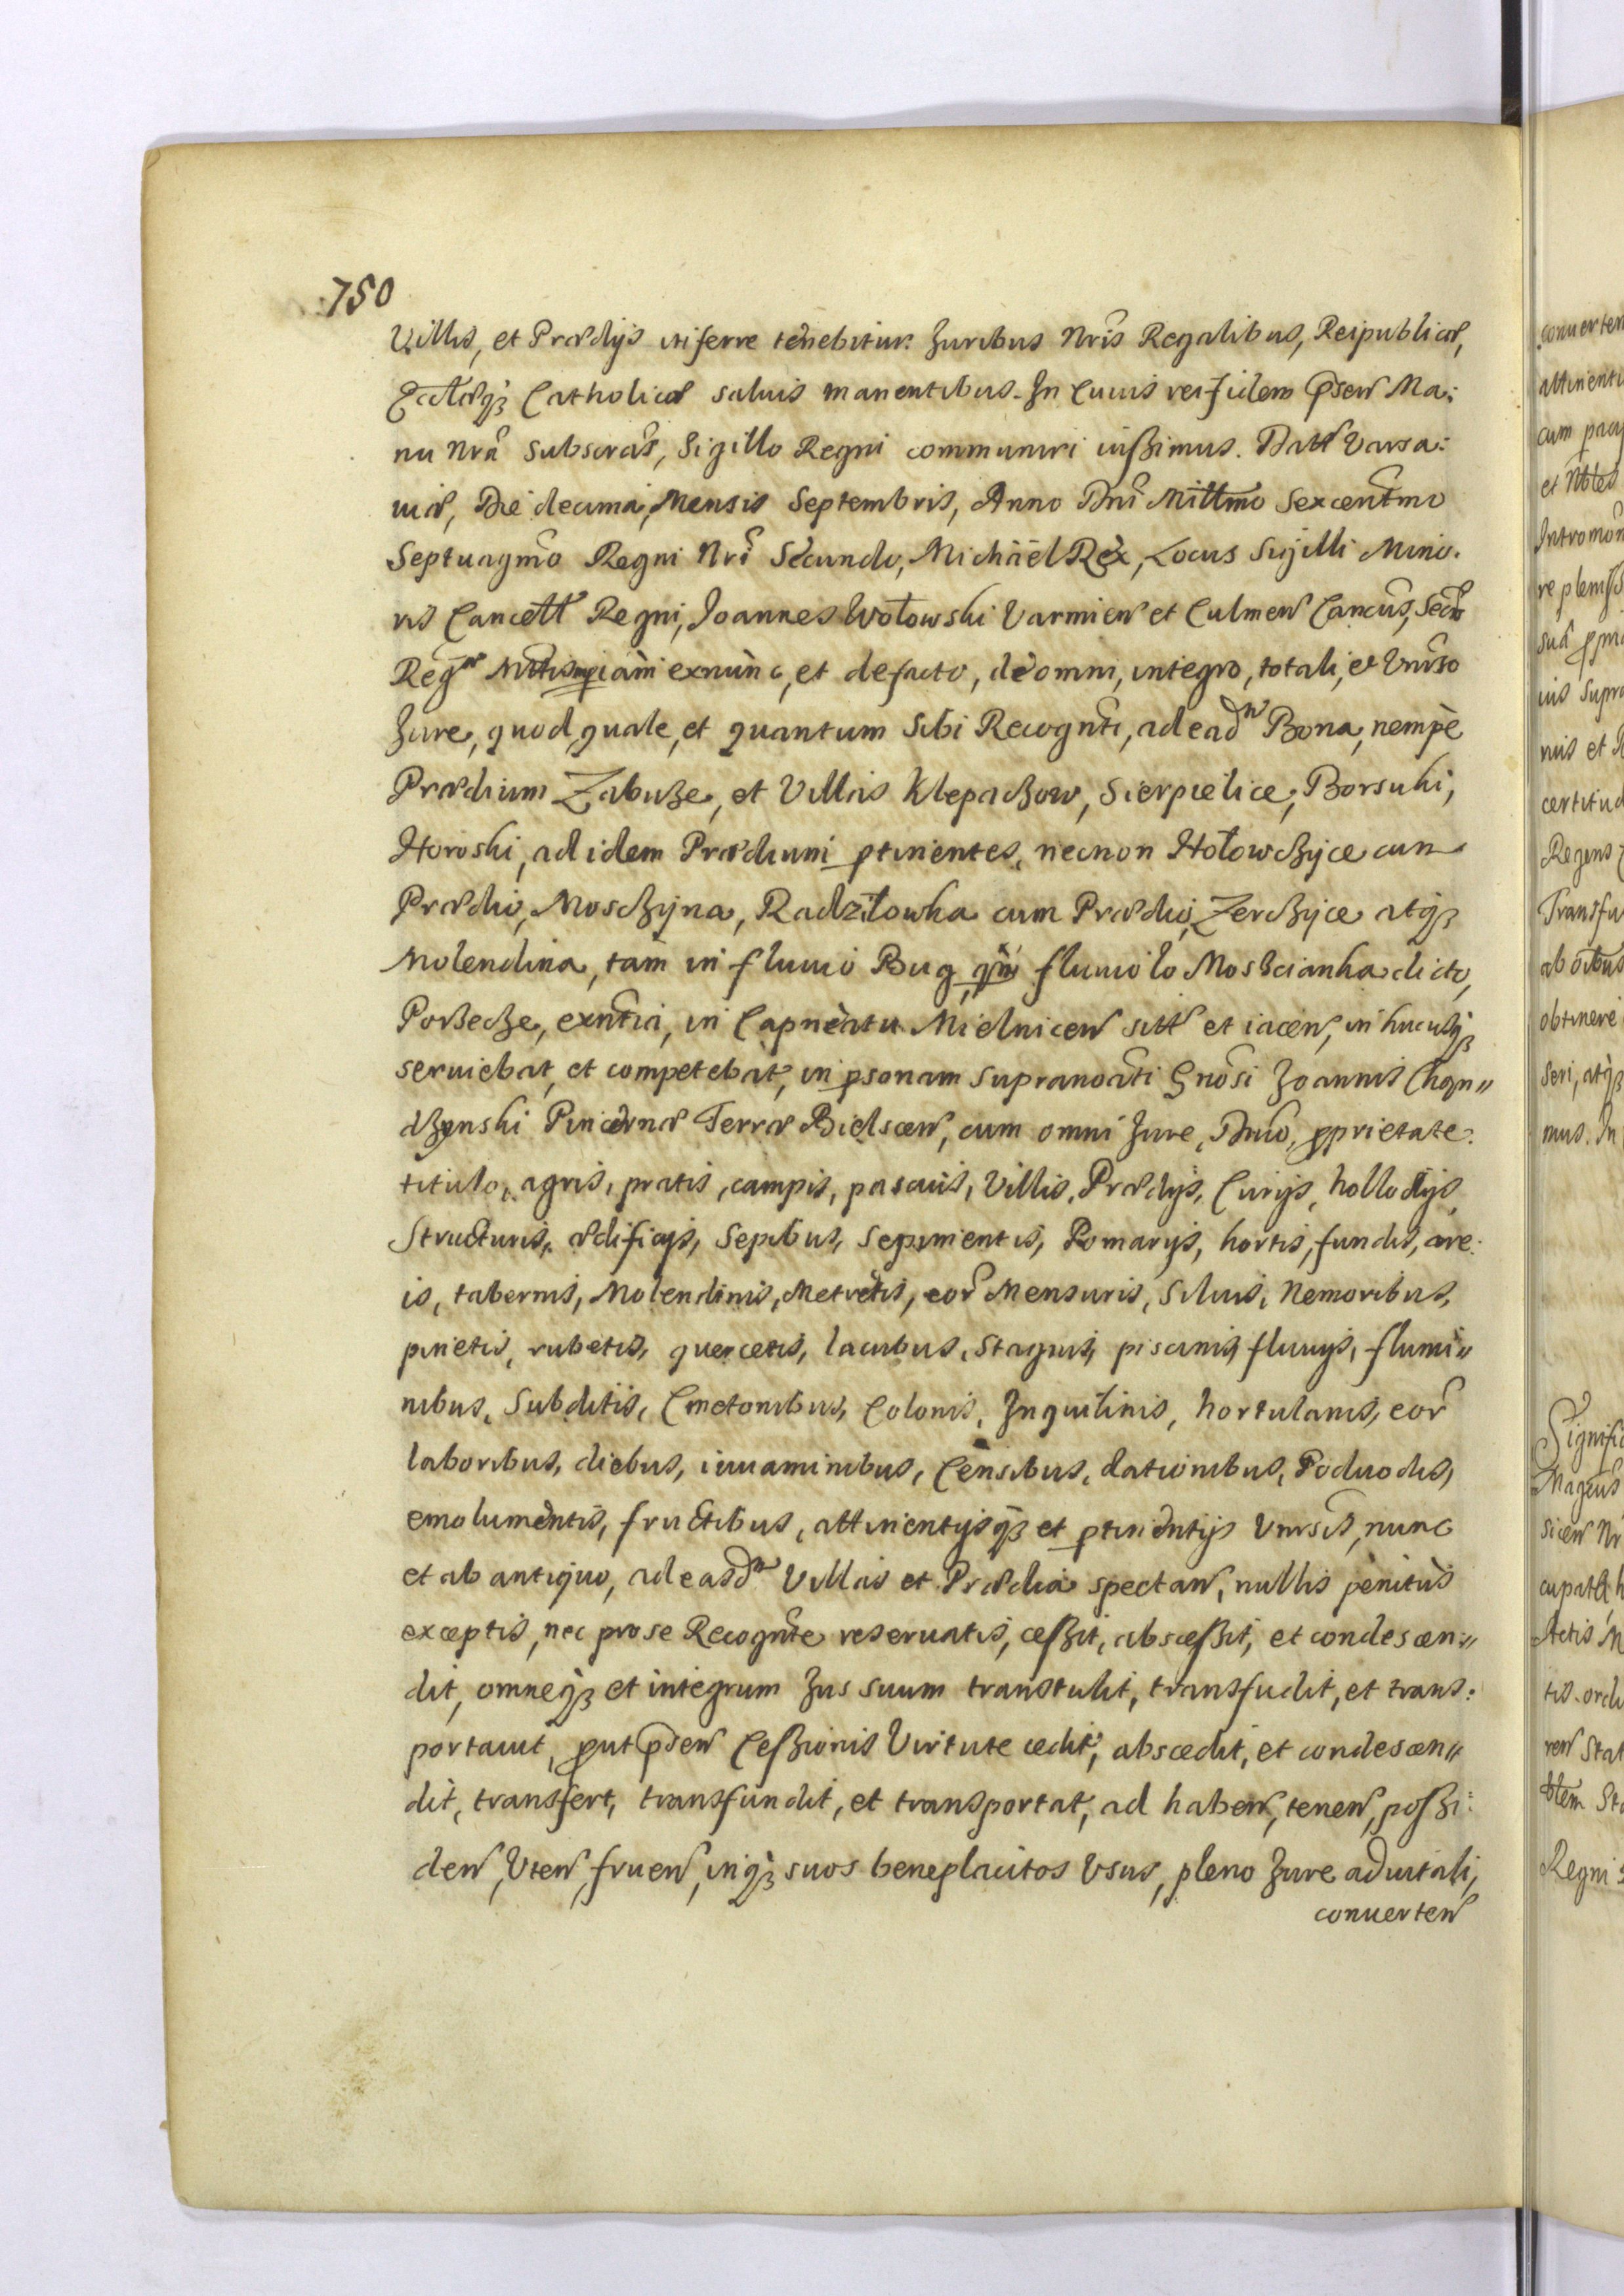 750
Villis, et Prædijs uti ferre tenebitur. Juribus Nris Regalibus, Reipublicæ,
Ecclæq3 Catholicæ saluis manentibus. In Cuius rei fidem psen Ma:
nu Nra subscras, Sigillo Regni communiri iussimus. Datt Varsa:
uiæ, Die decima, Mensis Septembris, Anno Dni Millmo Sexcentmo
Septuagmo Regni Nri Secundo, Michäel Rex, Locus Sigilli Mino.
ris Cancell Regni, Joannes Wołowski Varmien et Culmen Cancus, Secr
Reg iam exnunc, et defacto, de omni, integro, totali, et Vnrso
Jure, quod, quale, et quantum Sibi Recognti, ad ead Bona, nempè
Prædium Zabuże, et Villas Klepaczow, Sierpielice, Borsuki,
Horoski, ad idem Prædium ptinentes, necnon Hołowczyce cum
Prædio, Mosczyna, Radziłowka cum Prædio, Zerczyce atq3
Molendina, tàm in fluuio Bug, qm fluuiolo Moszcianka dicto,
Porzecze, exntia, in Capneatu Mielnicen sitt et iacen, in hucusq3
seruiebat, et competebat, in psonam supranoati Gnosi Joannis Chąn〃
dzynski Pincernæ Terræ Bielscen, cum omni Jure, Dnio, pprietate.
titulo, agris, pratis, campis, pascuis, Villis, Prædijs, Curijs, hollodijs,
Structuris, ædificijs, Sepibus, Sepimentis, Pomarijs, hortis, fundis, are:
is, tabernis, Molendinis, Metretis, eor Mensuris, Siluis, Nemoribus,
pinetis, rubetis, quercetis, lacubus, Stagnis, piscinis, fluuijs, flumi〃
nibus, Subditis, Cmetonibus, Colonis, Inquilinis, hortulanis, eor
laboribus, diebus, iuuaminibus, Censibus, dationibus, Poduodis,
emolumentis, fructibus, attinentijsq3 et ptinentijs Vnrsis, nunc
et ab antiquo, ad easd Villas et Prædia spectan, nullis penitùs
exceptis, nec pro se Recognte reseruatis, cessit, abscessit, et condescen〃
dit, omneq3 et integrum Jus suum transtulit, transfudit, et trans:
portauit, put psen Cessionis Virtute cedit, abscedit, et condescen〃
dit, transfert, transfundit, et transportat, ad haben, tenen, possi:
den, Vten, fruen, inq3 suos beneplacitos Vsus, pleno Jure aduitali,
conuerten